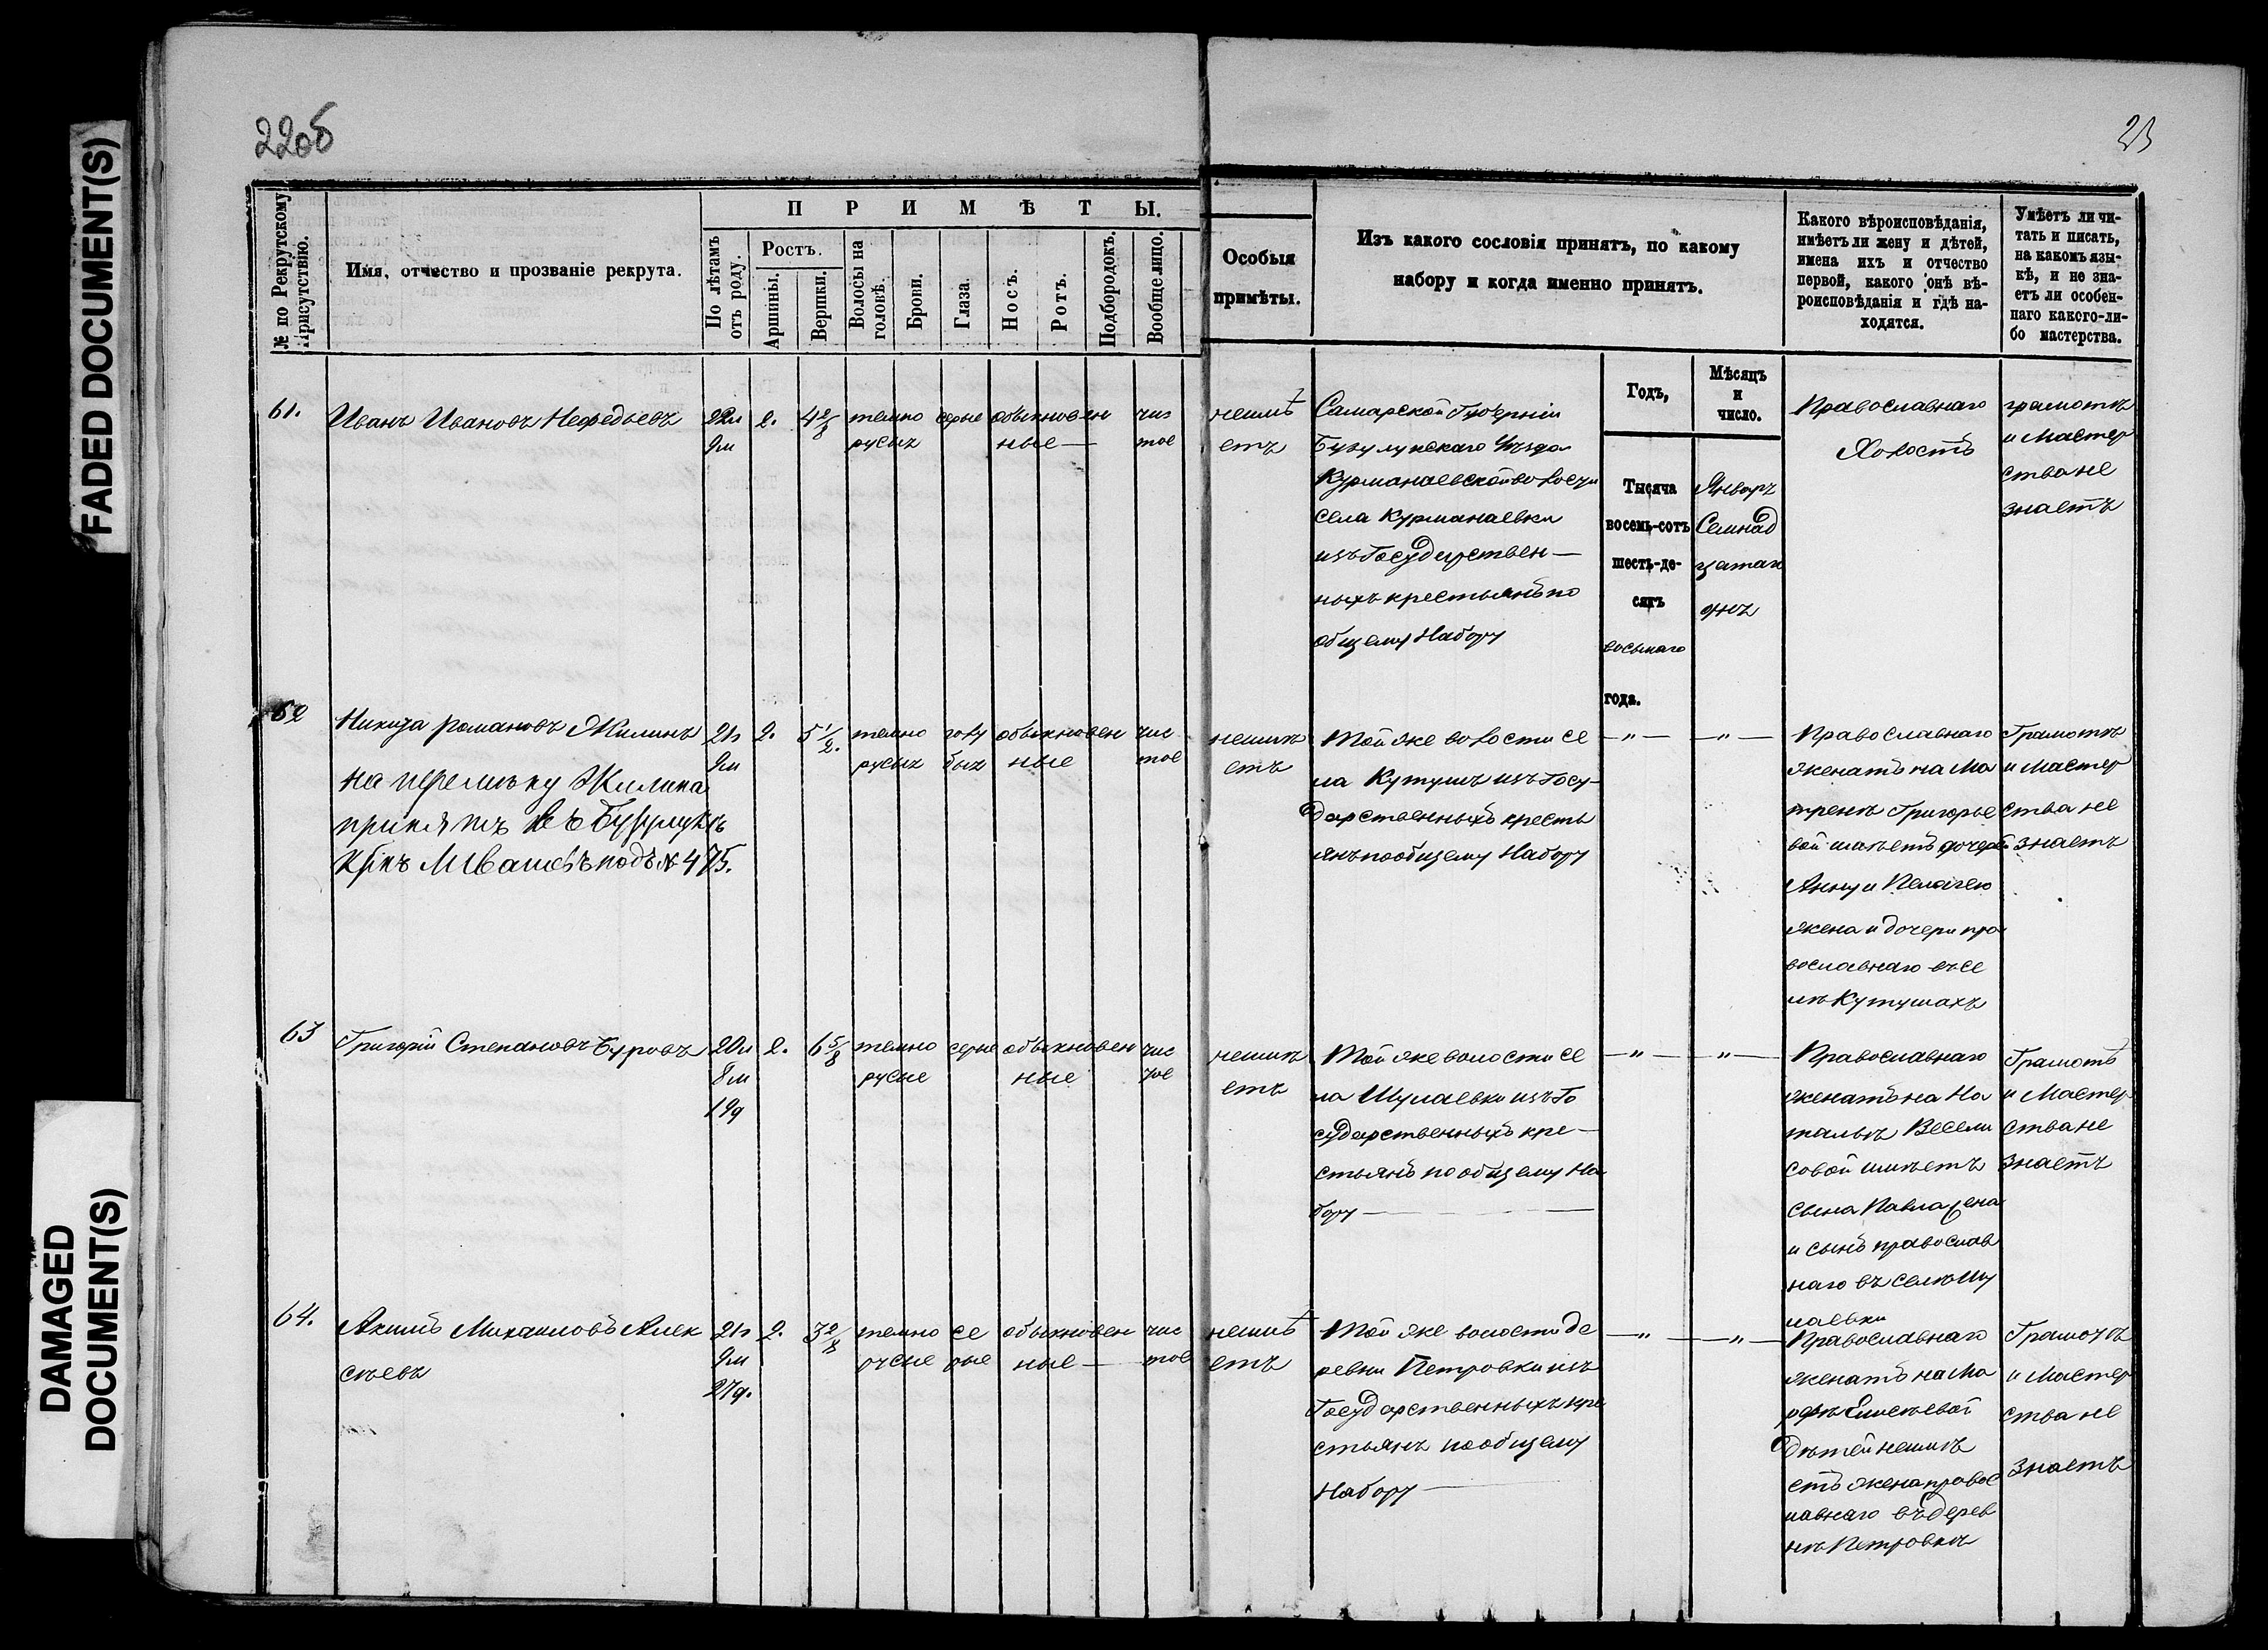 FADED DOCUMENT(S)
DAMAGED
DOCUMENT(S)
22об
23
№ по Рекрутскому
Присутствію.
Имя, отчество и прозваніе рекрута.
ПРИМѢТЫ.
По лѣтамъ
отъ роду.
Ростъ.
Аршины.
Вершки.
Волосы на
головѣ.
Брови.
Глаза.
Носъ.
Ротъ.
Подбородокъ.
Вообще лицо.
Особыя
примѣты.
Изъ какого сословія принятъ, по какому
набору и когда именно принятъ.
Какого вѣроисповѣданія,
имѣетъ ли жену и дѣтей,
имена ихъ и отчество
первой, какого онѣ вѣ-
роисповѣданія и гдѣ на-
ходятся.
Умѣетъ ли чи-
тать и писать,
на какомъ язы-
кѣ, и не зна-
етъ ли особен-
наго какого-ли-
бо мастерства.
Годъ,
Мѣсяцъ
и
число.
61.
Иванъ Ивановъ Нефедьевъ
22л
9м
2.
4 2/8
темно
русых
серые
обыкновен
ные —
чис
тое
неимѣ
етъ
Самарской Губерніи
Бузулукскаго Уѣзда
Курманаевской волости
села Курманаевки
изъ Государствен—
ныхъ крестьянъ по
общему Набору
Тысяча
восемь-сотъ
шесть-де-
сятъ
восьмаго
года.
Январь
Семнад
цатаго
дня
Православнаго
Холостъ
грамотѣ
и мастер
ства не
знаетъ
62
Никита романовъ Жилинъ
на перемѣну Жилина
принятъ въ Бузулукѣ
Ивашевъ подъ № 475.
21л
9м
2.
5 1/2.
темно
русых
голу
бых
обыкновен
ные
чис
тое
неимѣ
етъ
Той же волости се
ла Кутушъ изъ Госу-
дарственныхъ кресть
янъ по общему Набору
— „ —
— „ —
Православнаго
женатъ на Ма
тренѣ Григорье
вой имѣетъ дочерей
Анну и Пелагею
жена и дочери пра
вославнаго въ се
лѣ Кутушахъ
Грамотѣ
и мастер
ства не
знаетъ
63
Григорій Степановъ Буровъ
20л
8м
19д
2.
6 5/8
темно
русые
серые
обыкновен
ные
чис
тое
неимѣ
етъ
Той же волости се
ла Шулаевки изъ Го
сударственныхъ кре—
стьянъ по общему На
бору —
— „ —
— „ —
Православнаго
женатъ на На
тальѣ Весели
совой имѣетъ
сына Павла жена
и сынъ православ
наго въ селѣ Шу
лаевки
Грамотѣ
и Мастер
ства не
знаетъ
64.
Акимъ Михаиловъ Алек
сѣевъ
21л
9м
27д.
2.
3 2/8
темно
русые
се
рые
обыкновен
ные —
чис
тое
неимѣ
етъ
Той же волости де
ревни Петровки изъ
Государственныхъ кре
стьянъ по общему
Набору —
— „ —
— „ —
Православнаго
женатъ на Ма
рфѣ Елисѣевой
Дѣтей неимѣ
етъ жена правос
лавнаго въ дерев
нѣ Петровкѣ
Грамотѣ
и Мастер
ства не
знаетъ